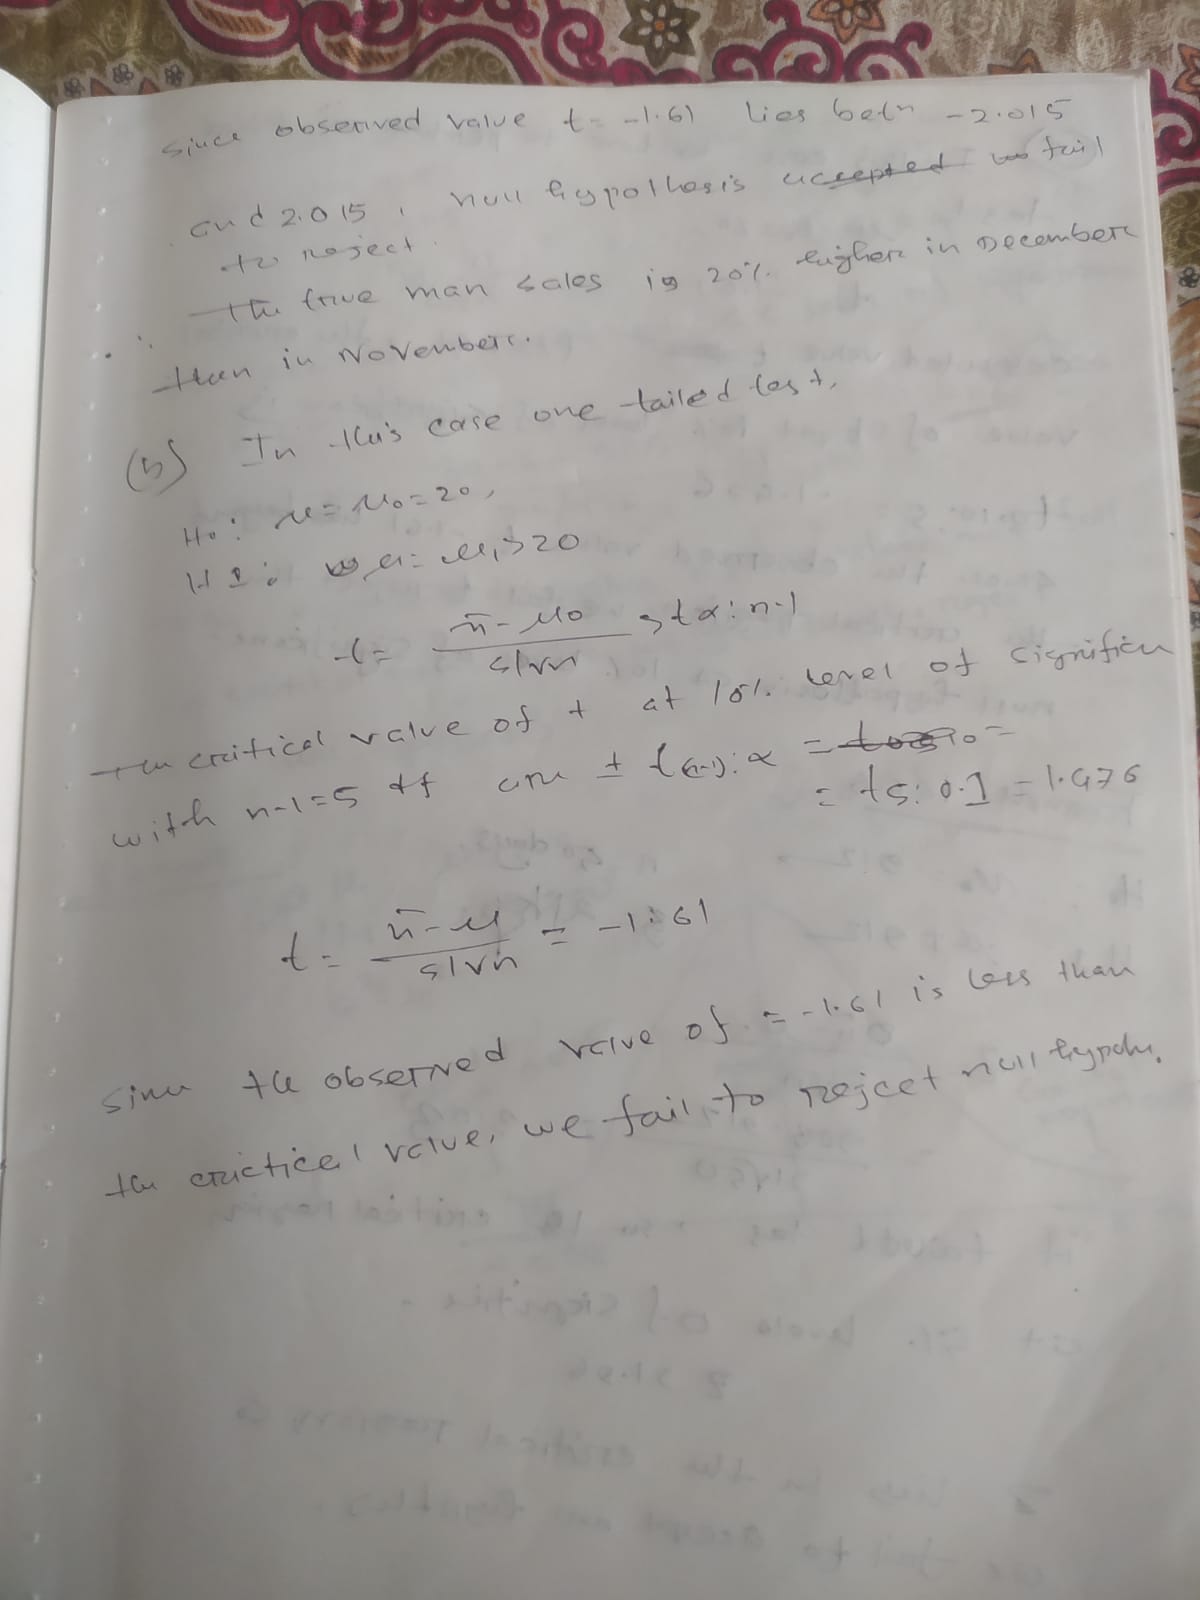 since observed value t = -1.61 lies betn -2.015
and 2.015, null hypothesis accepted fail
to reject.
∴ The true man sales is 20% higher in December
then in November.
(b) In this case one tailed test,
H0: μ = μ0 = 20,
H1: μ = μ1 > 20
t = x̄ - μ0 / s/√n > tα: n-1
The critical value of t at 10% level of significan
with n-1 = 5 df are ± t(n-1): α =
= t5: 0.1 = 1.476
t = x̄ - μ / s/√n = -1.61
since the observed value of = -1.61 is less than
the crictical value, we fail to rejcet null hypoth.